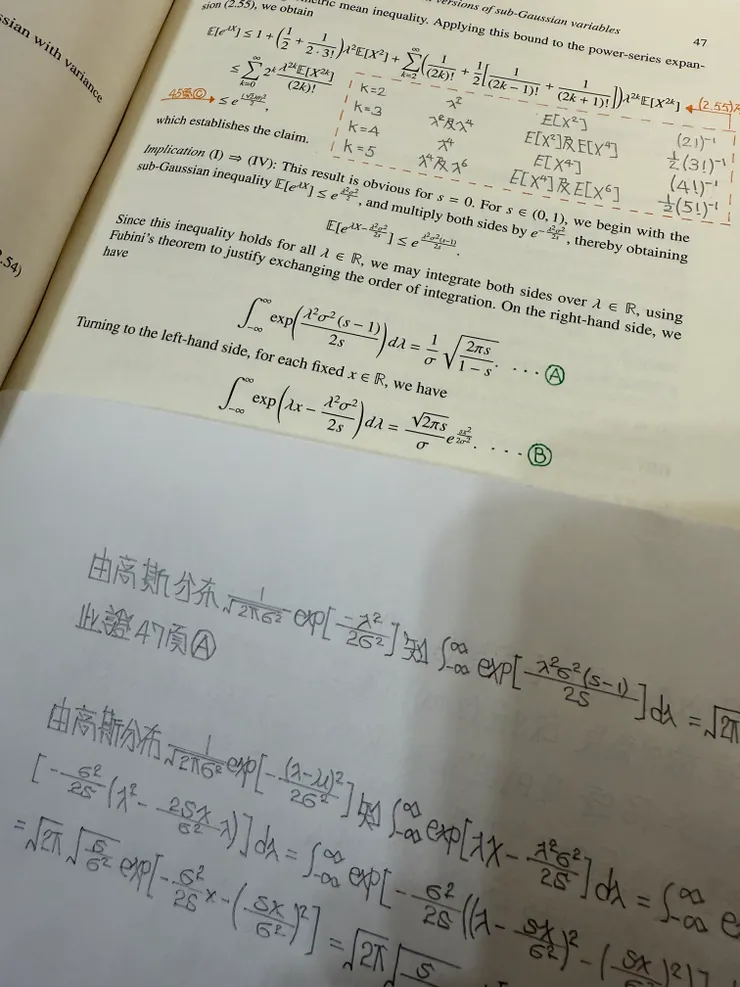 versions of sub-Gaussian variables
47
metric mean inequality. Applying this bound to the power-series expan-
sion (2.55), we obtain
𝔼[e^{λX}] ≤ 1 + (1/2 + 1/(2·3!)) λ²𝔼[X²] + ∑_{k=2}^{∞} (1/(2k)! + 1/2[1/(2k−1)! + 1/(2k+1)!]) λ^{2k}𝔼[X^{2k}] ← (2.55)
≤ ∑_{k=0}^{∞} 2^k λ^{2k}𝔼[X^{2k}]/(2k)!
k=2 λ² E[X²] (2!)⁻¹
k=3 λ²及λ⁴ E[X²]及E[X⁴] ½(3!)⁻¹
k=4 λ⁴ E[X⁴] (4!)⁻¹
k=5 λ⁴及λ⁶ E[X⁴]及E[X⁶] ½(5!)⁻¹
which establishes the claim.
Implication (I) ⇒ (IV): This result is obvious for s = 0. For s ∈ (0, 1), we begin with the
sub-Gaussian inequality 𝔼[e^{λX}] ≤ e^{λ²σ²/2}, and multiply both sides by e^{−λ²σ²/2s}, thereby obtaining
𝔼[e^{λX−λ²σ²/2s}] ≤ e^{λ²σ²(s−1)/2s}.
Since this inequality holds for all λ ∈ ℝ, we may integrate both sides over λ ∈ ℝ, using
Fubini's theorem to justify exchanging the order of integration. On the right-hand side, we
have
∫_{−∞}^{∞} exp(λ²σ²(s−1)/2s) dλ = 1/σ √(2πs/(1−s)). ···· Ⓐ
Turning to the left-hand side, for each fixed x ∈ ℝ, we have
∫_{−∞}^{∞} exp(λx − λ²σ²/2s) dλ = √(2πs)/σ e^{sx²/2σ²}. ···· Ⓑ
ssian with variance
.54)
由高斯分布 1/√(2πσ²) exp[−λ²/2σ²] 知 ∫_{−∞}^{∞} exp[λ²σ²(s−1)/2s] dλ = √2π
此證47頁Ⓐ
由高斯分布 1/√(2πσ²) exp[−(λ−μ)²/2σ²] 知 ∫_{−∞}^{∞} exp[λx − λ²σ²/2s] dλ = ∫_{−∞}^{∞} e
[−σ²/2s (λ² − 2sx/σ² λ)] dλ = ∫_{−∞}^{∞} exp[−σ²/2s ((λ − sx/σ²)² − (sx/σ²)²)]
= √2π √(s/σ²) exp[−σ²/2s × −(sx/σ²)²] = √2π √s